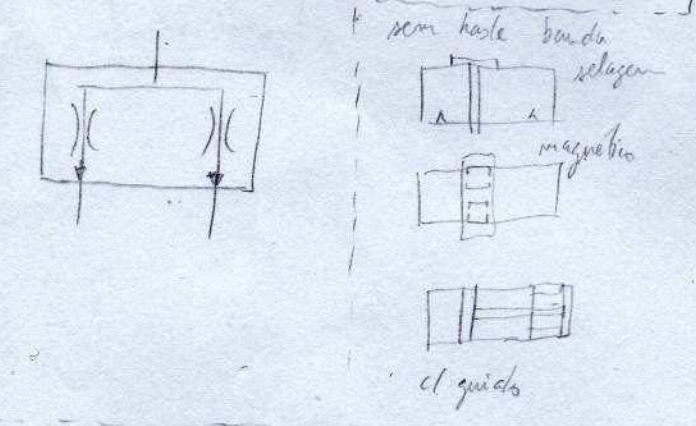 sem haste banda
selagem
magnético
c/ guiado